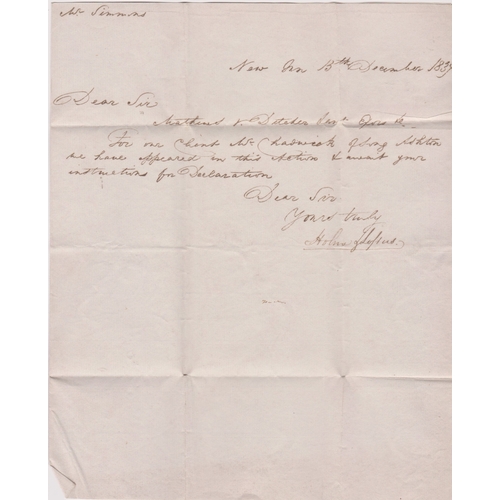 Mr Simmons
New Inn 13th December 1837
Dear Sir
Mathews v
For our Client Mr Chadwick of Long Ashton
we have appeared in this Action & await your
instructions for Declaration
Dear Sir
Yours truly